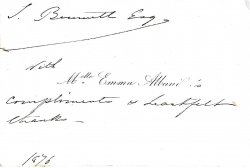 J. Bennett Esq.
With
Mlle Emma Albani's
compliments & heartfelt
thanks —
1876